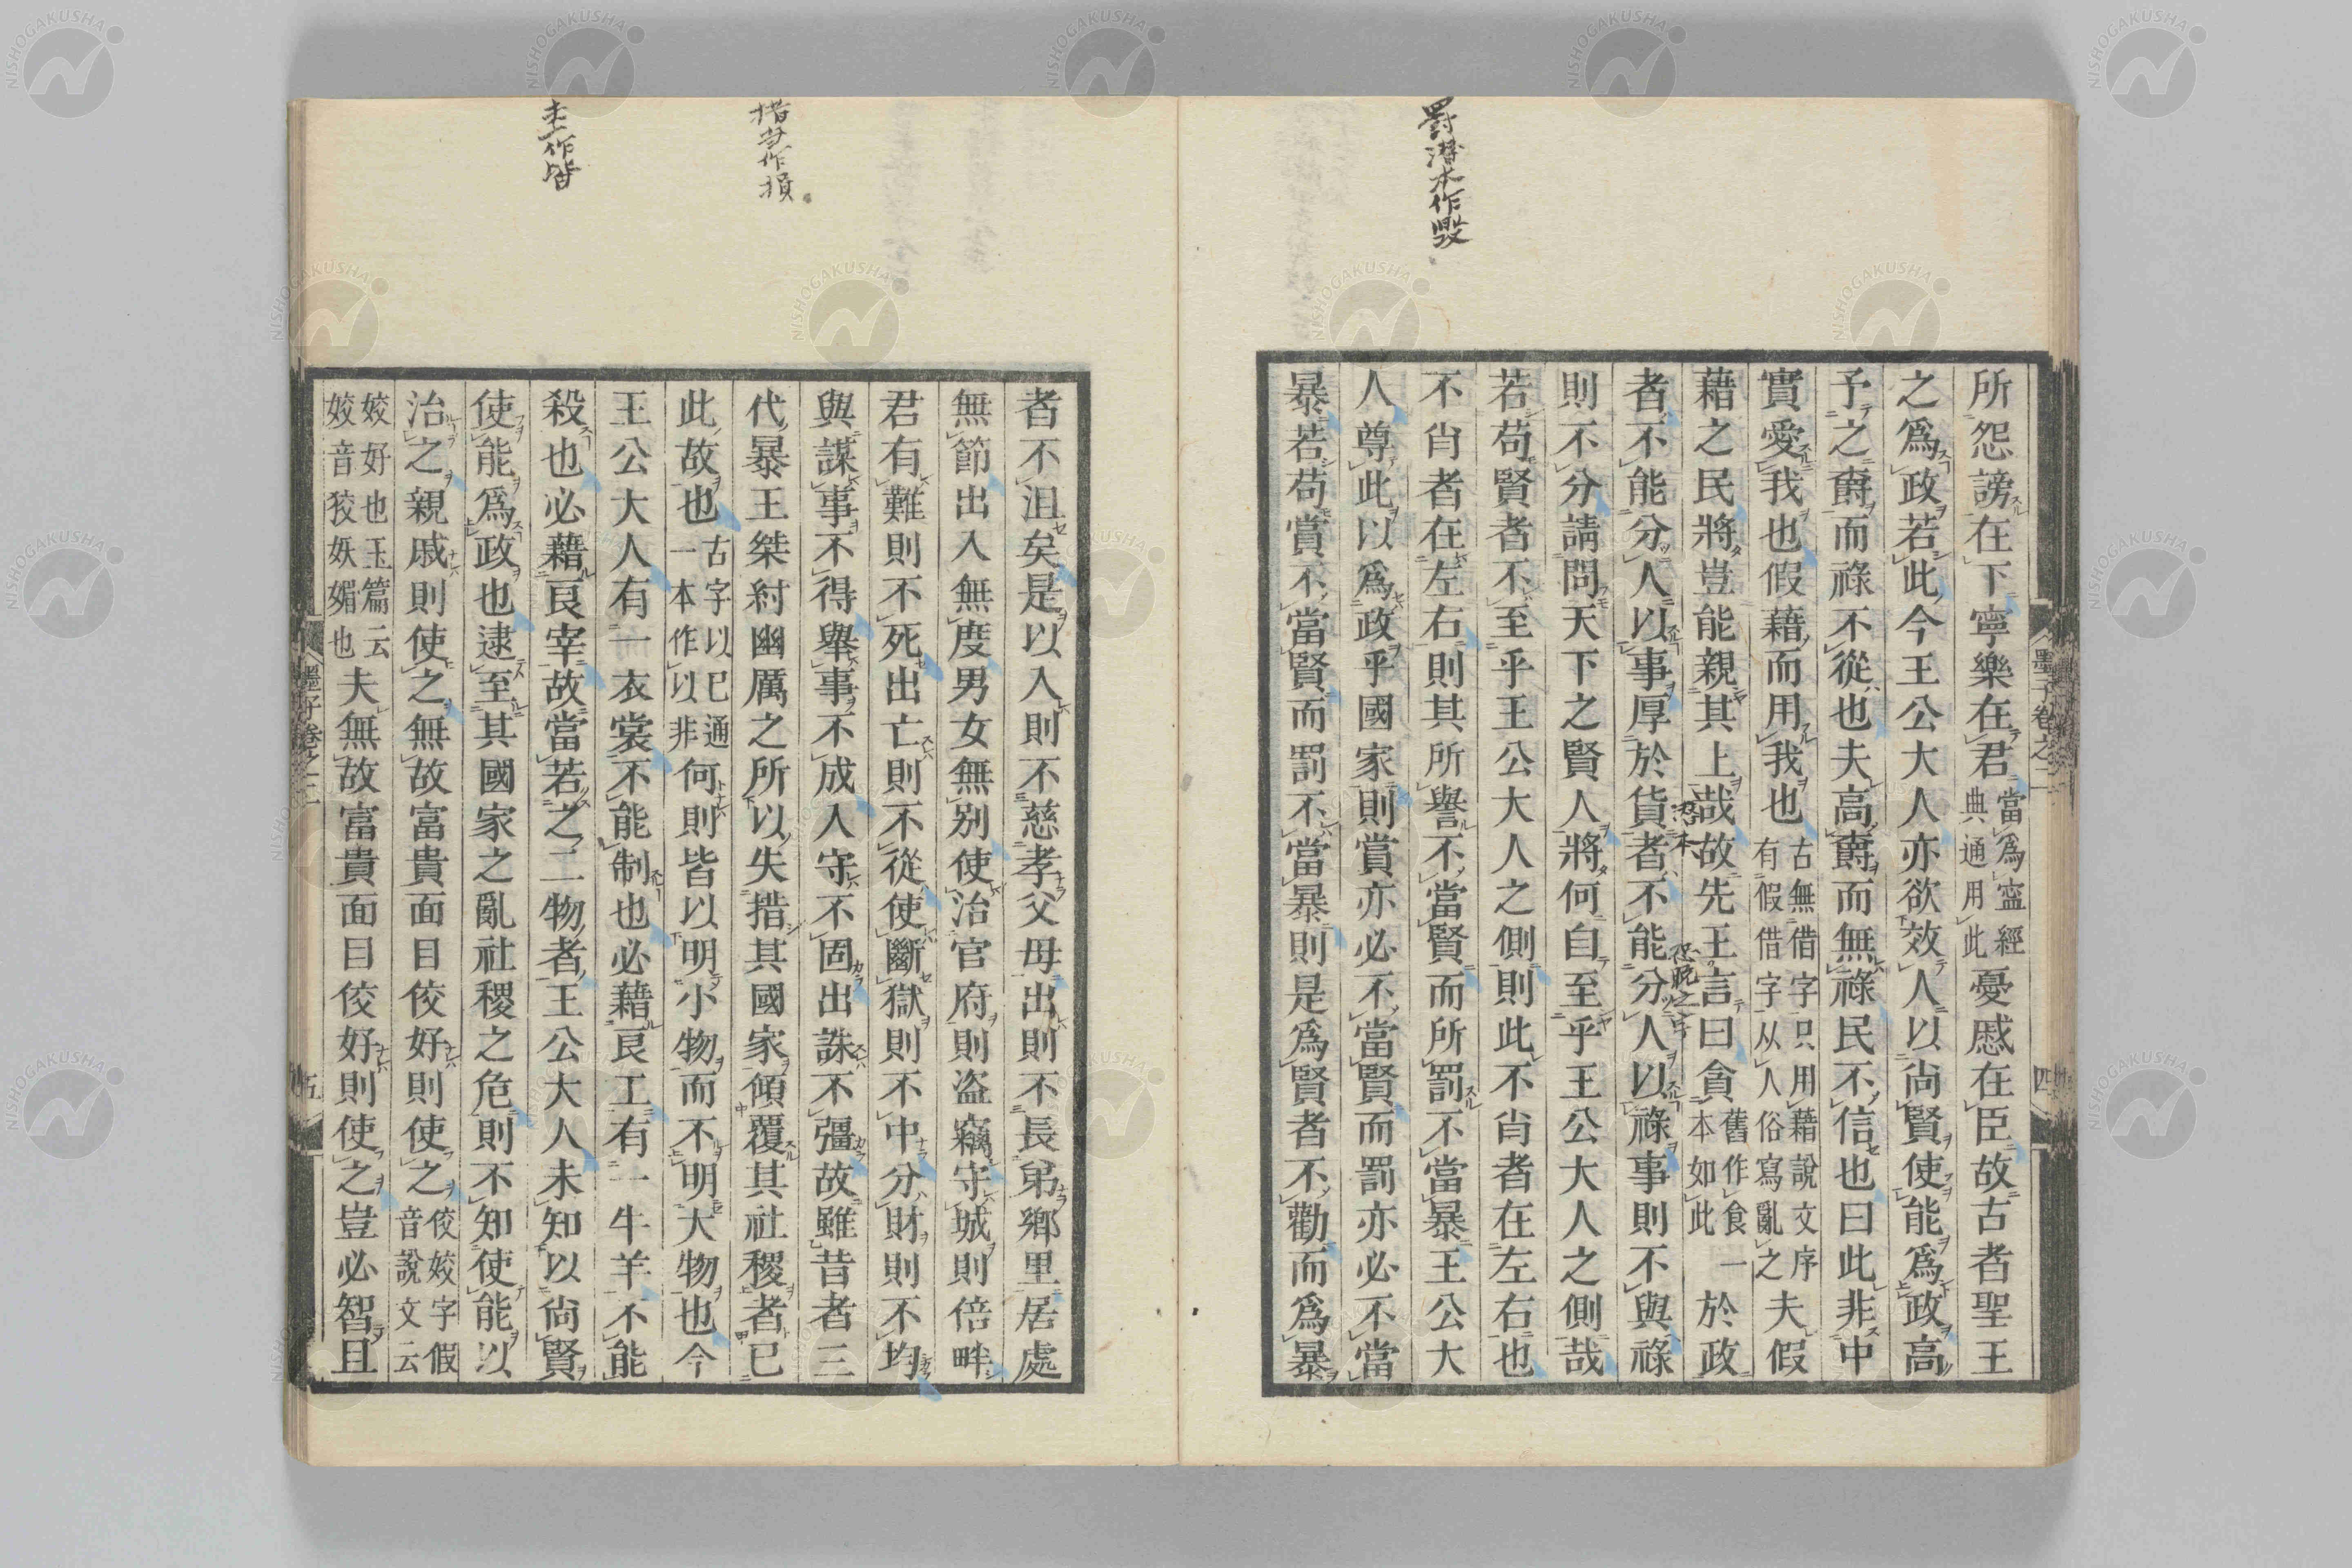 罸潛本作毀
所怨謗在下寧樂在君當爲寍經典通用此憂慼在臣故古者聖王
之爲政若此今王公大人亦欲效人以尙賢使能爲政高
予之爵而祿不從也夫高爵而無祿民不信也曰此非中
實愛我也假藉而用我也古無借字只用藉說文序有假借字从人俗寫亂之夫假
藉之民將豈能親其上哉故先王言曰貪舊作食一本如此於政
者不能分人以事厚於貨者不能分人以祿事則不與祿
則不分請問天下之賢人將何自至乎王公大人之側哉
若苟賢者不至乎王公大人之側則此不肖者在左右也
不肖者在左右則其所譽不當賢而所罰不當暴王公大
人尊此以爲政乎國家則賞亦必不當賢而罰亦必不當
暴若苟賞不當賢而罰不當暴則是爲賢者不勸而爲暴
墨子卷之二
四
措當作損
圭作皆
者不沮矣是以入則不慈孝父母出則不長弟鄉里居處
無節出入無度男女無別使治官府則盜竊守城則倍畔
君有難則不死出亡則不從使斷獄則不中分財則不均
與謀事不得舉事不成入守不固出誅不彊故雖昔者三
代暴王桀紂幽厲之所以失措其國家傾覆其社稷者已
此故也古字以巳通一本作以非何則皆以明小物而不明大物也今
王公大人有一衣裳不能制也必藉良工有一牛羊不能
殺也必藉良宰故當若之二物者王公大人未知以尙賢
使能爲政也逮至其國家之亂社稷之危則不知使能以
治之親戚則使之無故富貴面目佼好則使之佼姣字假音說文云
姣好也玉篇云姣音狡妖媚也夫無故富貴面目佼好則使之豈必智且
墨子卷之二
五